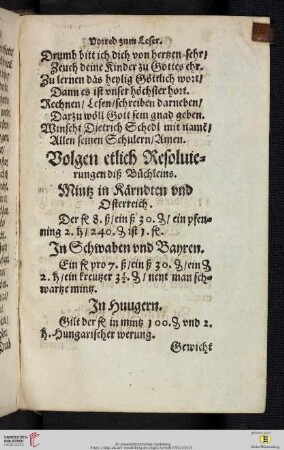 Vorred zum Leser.
Drumb bitt ich dich von hertzen sehr/
Zeuch deine Kinder zu Gottes ehr.
Zu lernen das heylig Göttlich wort/
Dann es ist vnser höchster hort.
Rechnen/ Lesen/ schreiben darneben/
Darzu wöll Gott sein gnad geben.
Winscht Dietrich Schedl mit namẽ/
Allen seinen Schulern/ Amen.
Volgen etlich Resoluie-
rungen diß Büchleins.
Mintz in Kärndten vnd
Osterreich.
Der fl 8. ß/ ein ß 30. ₰/ ein pfen-
ning 2. h/ 240. ₰ ist 1. fl.
In Schwaben vnd Bayren.
Ein fl pro 7. ß/ ein ß 30. ₰/ ein ₰
2. h/ ein kreutzer 3½. ₰/ nent man sch-
wartze mintz.
In Huugern.
Gilt der fl in mintz 100. ₰ vnd 2.
h. Hungarischer werung.
Gewicht